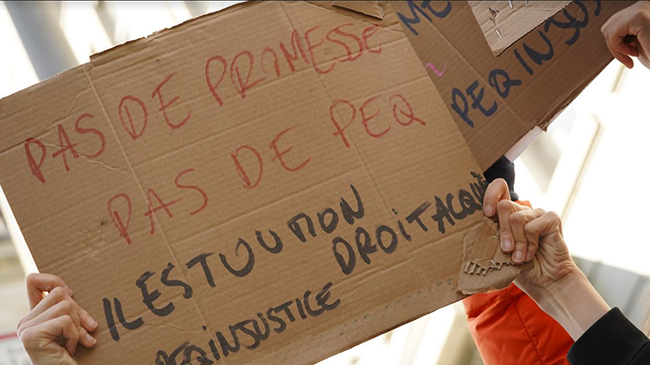 PAS DE PROMESSE
PAS DE PEQ
IL EST OÙ MON
DROIT ACQUIS
PEQ INJUSTICE
PEQ INJUS